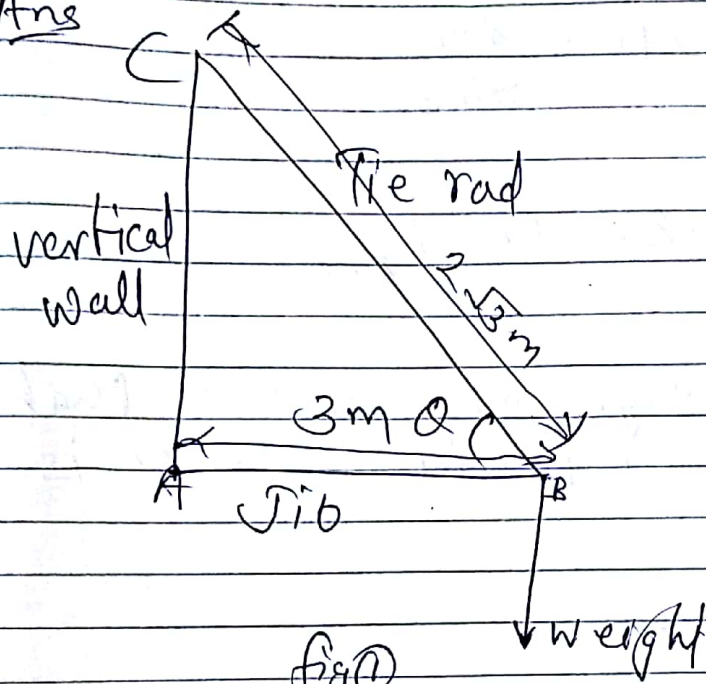 Ans
C
Tie rad
vertical
wall
2√3 m
3m θ
A
Jib
B
weight
fig ①